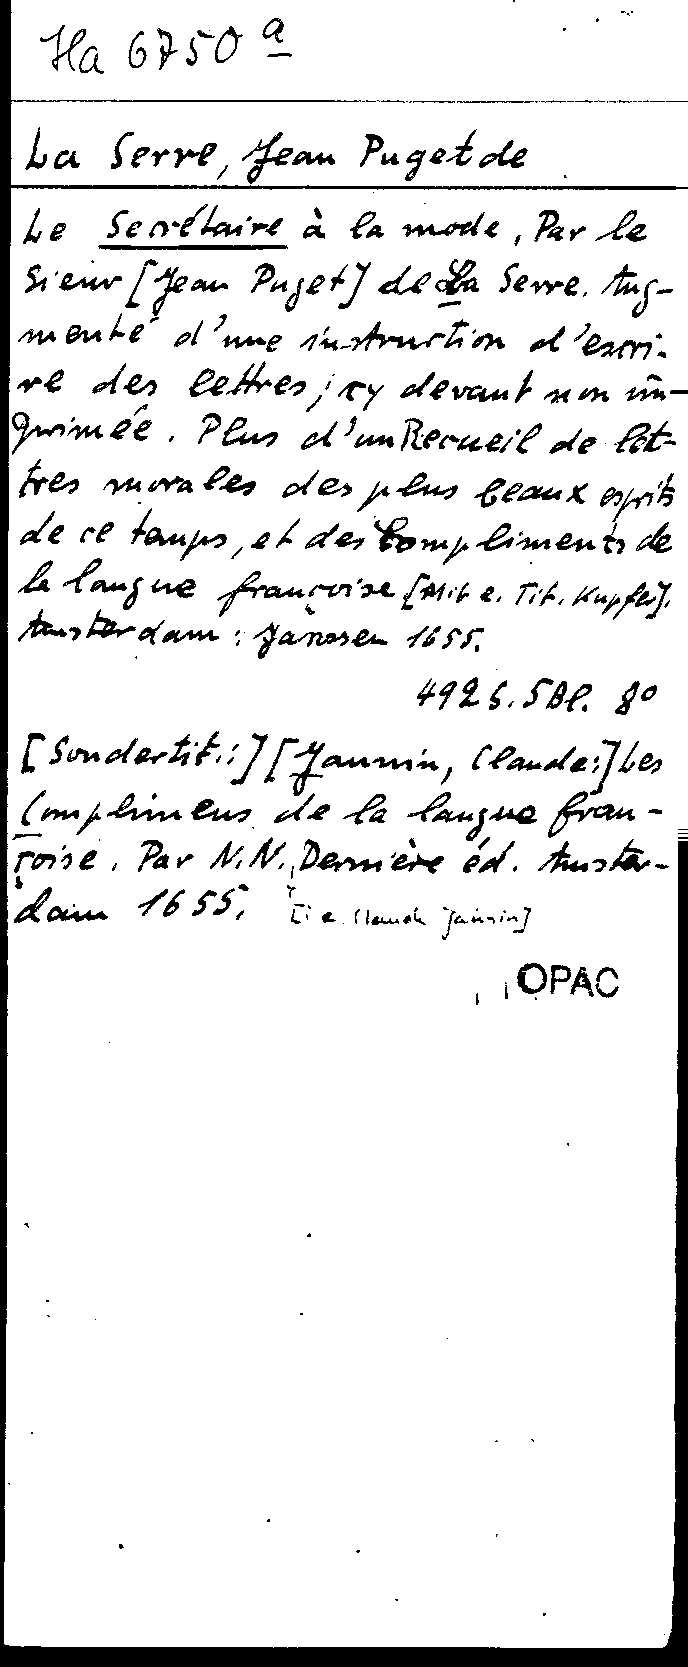 Ha 6750 a
La Serre, Jean Puget de
Le Secrétaire à la mode, Par le
Sieur [Jean Puget] de La Serre. Aug-
menté d'une instruction d'escri-
re des lettres; cy devant non im-
primée. Plus d'un Recueil de let-
tres morales des plus beaux esprits
de ce temps, et des Compliments de
la langue françoise [Mit e. Tit. Kupfer].
Amsterdam: Janssen 1655.
492 S. 5 Bl. 8º
[Sondertit.:] [Jaunin, Claude:] Les
Complimens de la langue fran-
çoise. Par N.N. Dernière éd. Amster-
dam 1655. [i.e. Claude Jaunin]
OPAC